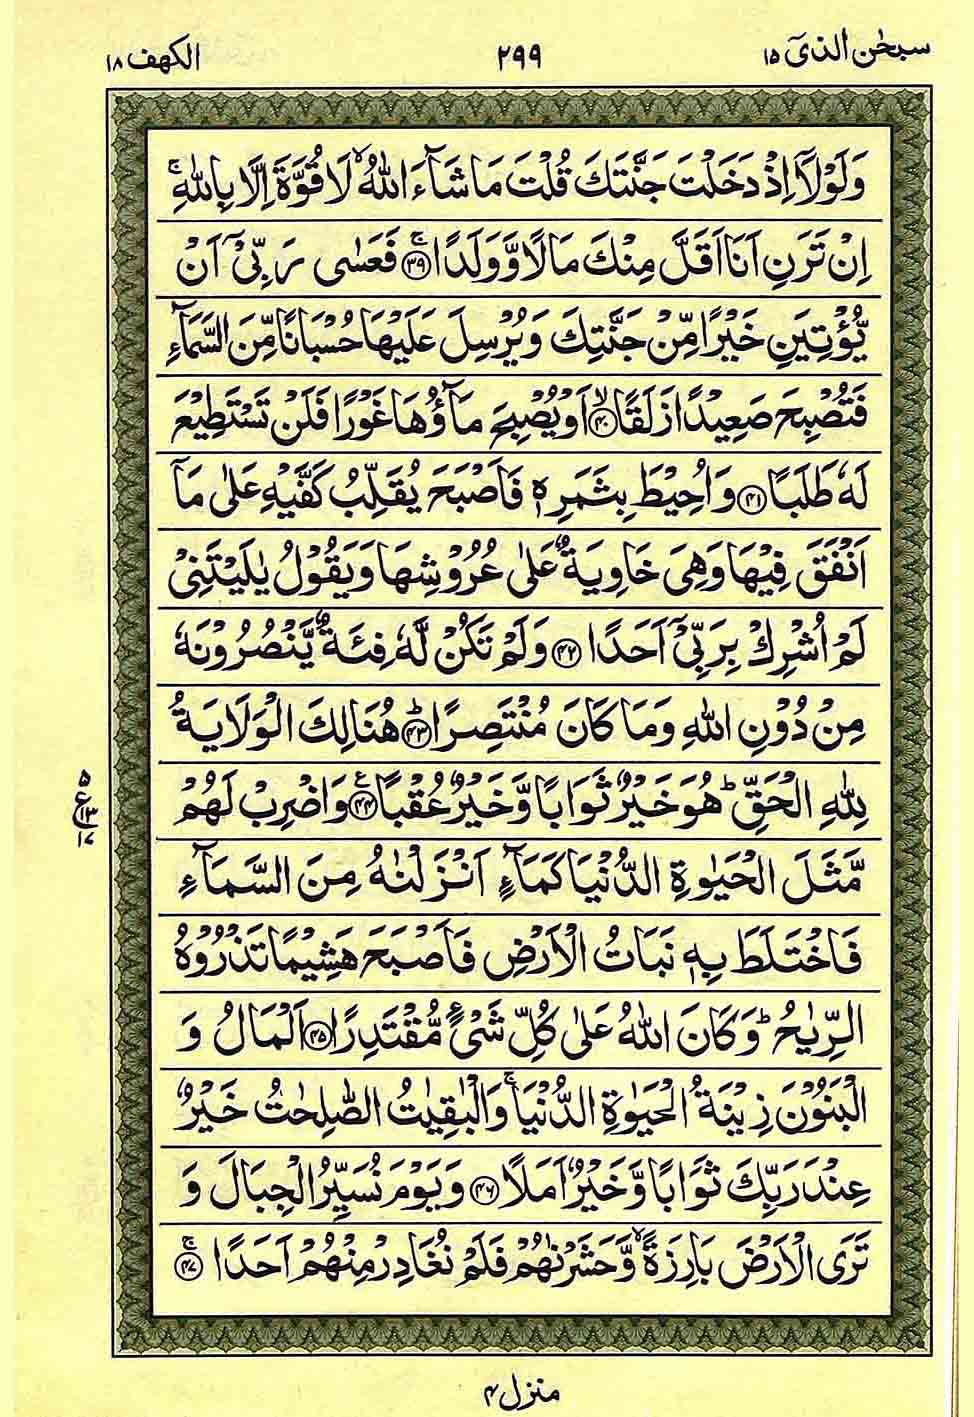 سبحٰن الذیٓ ۱۵
۲۹۹
الکھف ۱۸
وَلَوْلَاۤ اِذْ دَخَلْتَ جَنَّتَكَ قُلْتَ مَا شَآءَ اللّٰهُ ۙ لَا قُوَّةَ اِلَّا بِاللّٰهِ ۚ
اِنْ تَرَنِ اَنَا اَقَلَّ مِنْكَ مَالًا وَّ وَلَدًا ۚ ﴿۳۹﴾ فَعَسٰى رَبِّیْۤ اَنْ
یُّؤْتِیَنِ خَیْرًا مِّنْ جَنَّتِكَ وَ یُرْسِلَ عَلَیْهَا حُسْبَانًا مِّنَ السَّمَآءِ
فَتُصْبِحَ صَعِیْدًا زَلَقًا ۙ ﴿۴۰﴾ اَوْ یُصْبِحَ مَآؤُهَا غَوْرًا فَلَنْ تَسْتَطِیْعَ
لَهٗ طَلَبًا ﴿۴۱﴾ وَ اُحِیْطَ بِثَمَرِهٖ فَاَصْبَحَ یُقَلِّبُ كَفَّیْهِ عَلٰى مَاۤ
اَنْفَقَ فِیْهَا وَ هِیَ خَاوِیَةٌ عَلٰى عُرُوْشِهَا وَ یَقُوْلُ یٰلَیْتَنِیْ
لَمْ اُشْرِكْ بِرَبِّیْۤ اَحَدًا ﴿۴۲﴾ وَ لَمْ تَكُنْ لَّهٗ فِئَةٌ یَّنْصُرُوْنَهٗ
مِنْ دُوْنِ اللّٰهِ وَ مَا كَانَ مُنْتَصِرًا ؕ ﴿۴۳﴾ هُنَالِكَ الْوَلَایَةُ
لِلّٰهِ الْحَقِّ ؕ هُوَ خَیْرٌ ثَوَابًا وَّ خَیْرٌ عُقْبًا ﴿۴۴﴾ ع وَ اضْرِبْ لَهُمْ
۵
ع ۱۳
۱۷
مَّثَلَ الْحَیٰوةِ الدُّنْیَا كَمَآءٍ اَنْزَلْنٰهُ مِنَ السَّمَآءِ
فَاخْتَلَطَ بِهٖ نَبَاتُ الْاَرْضِ فَاَصْبَحَ هَشِیْمًا تَذْرُوْهُ
الرِّیٰحُ ؕ وَ كَانَ اللّٰهُ عَلٰى كُلِّ شَیْءٍ مُّقْتَدِرًا ﴿۴۵﴾ اَلْمَالُ وَ
الْبَنُوْنَ زِیْنَةُ الْحَیٰوةِ الدُّنْیَا ۚ وَ الْبٰقِیٰتُ الصّٰلِحٰتُ خَیْرٌ
عِنْدَ رَبِّكَ ثَوَابًا وَّ خَیْرٌ اَمَلًا ﴿۴۶﴾ وَ یَوْمَ نُسَیِّرُ الْجِبَالَ وَ
تَرَى الْاَرْضَ بَارِزَةً ۙ وَّ حَشَرْنٰهُمْ فَلَمْ نُغَادِرْ مِنْهُمْ اَحَدًا ۚ ﴿۴۷﴾
منزل ۴